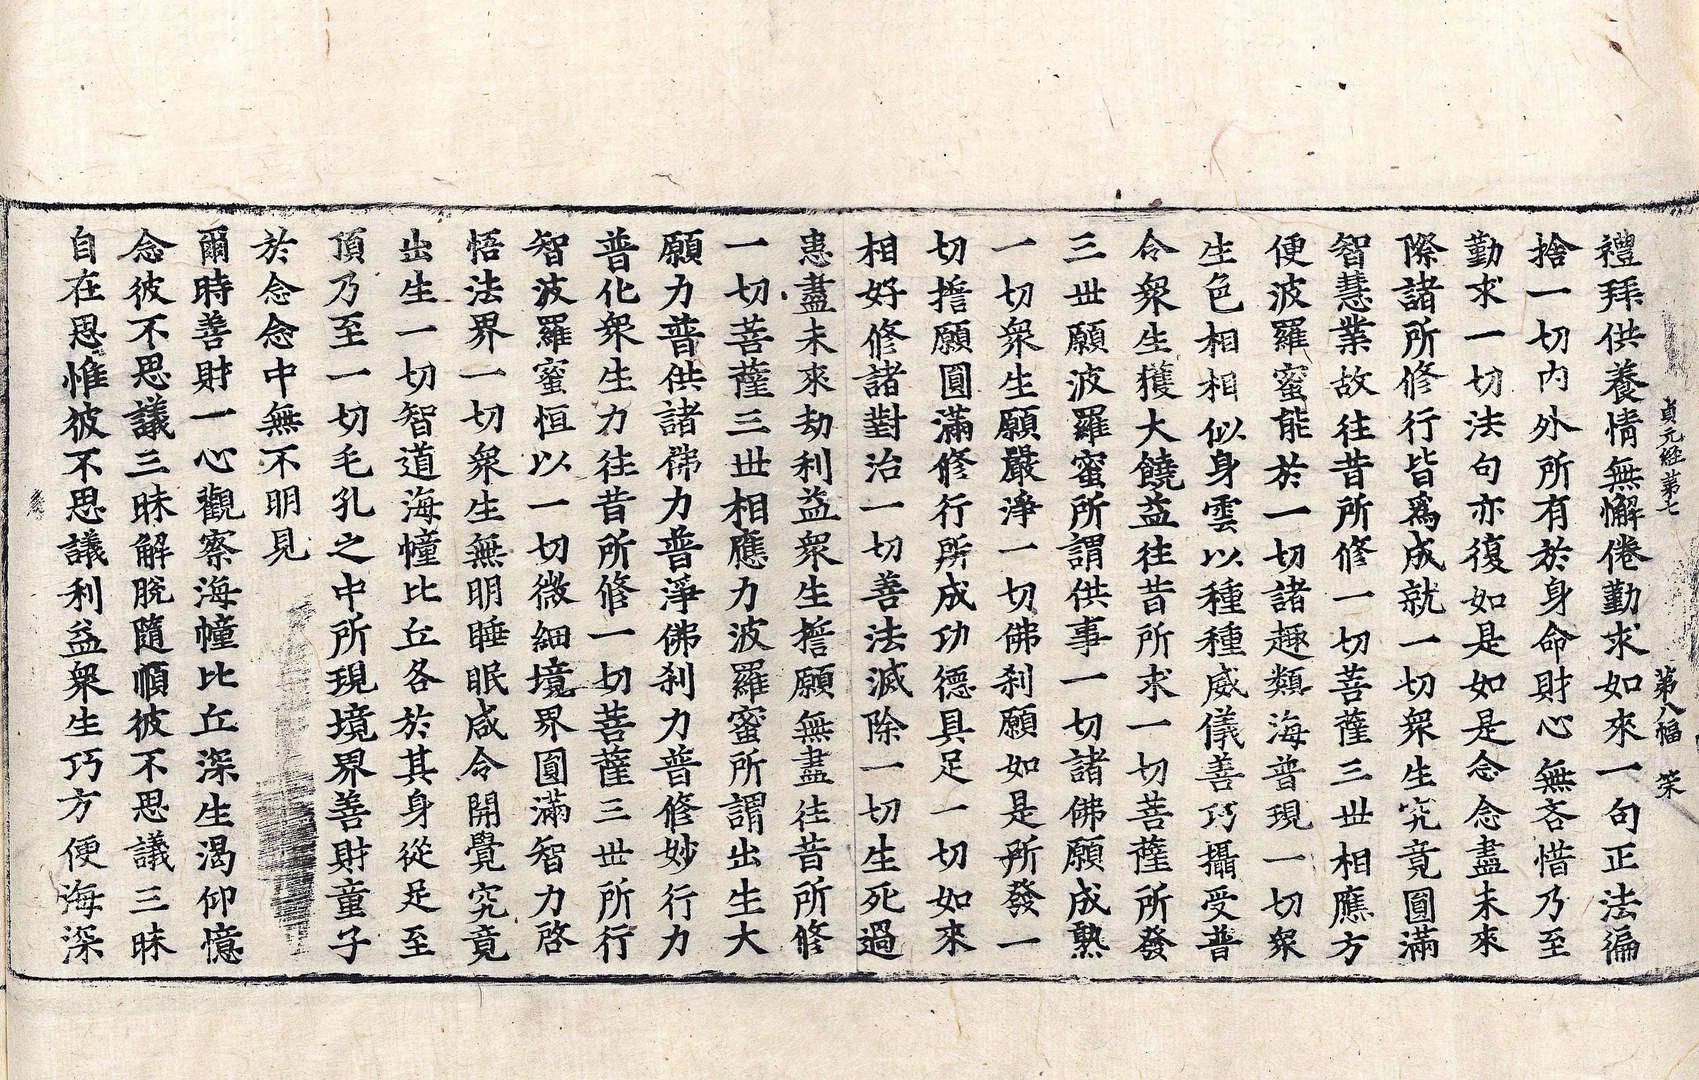 貞元經第七　第八幅　榮
禮拜供養情無懈倦勤求如來一句正法徧
捨一切內外所有於身命財心無吝惜乃至
勤求一切法句亦復如是如是念念盡未來
際諸所修行皆爲成就一切衆生究竟圓滿
智慧業故往昔所修一切菩薩三世相應方
便波羅蜜能於一切諸趣類海普現一切衆
生色相相似身雲以種種威儀善巧攝受普
令衆生獲大饒益往昔所求一切菩薩所發
三世願波羅蜜所謂供事一切諸佛願成熟
一切衆生願嚴淨一切佛刹願如是所發一
切擔願圓滿修行所成功德具足一切如來
相好修諸對治一切善法滅除一切生死過
患盡未來劫利益衆生擔願無盡往昔所修
一切菩薩三世相應力波羅蜜所謂出生大
願力普供諸佛力普淨佛刹力普修妙行力
普化衆生力往昔所修一切菩薩三世所行
智波羅蜜恒以一切微細境界圓滿智力啓
悟法界一切衆生無明睡眠咸令開覺究竟
出生一切智道海幢比丘各於其身從足至
頂乃至一切毛孔之中所現境界善財童子
於念念中無不明見
爾時善財一心觀察海幢比丘深生渴仰憶
念彼不思議三昧解脫隨順彼不思議三昧
自在思惟彼不思議利益衆生巧方便海深